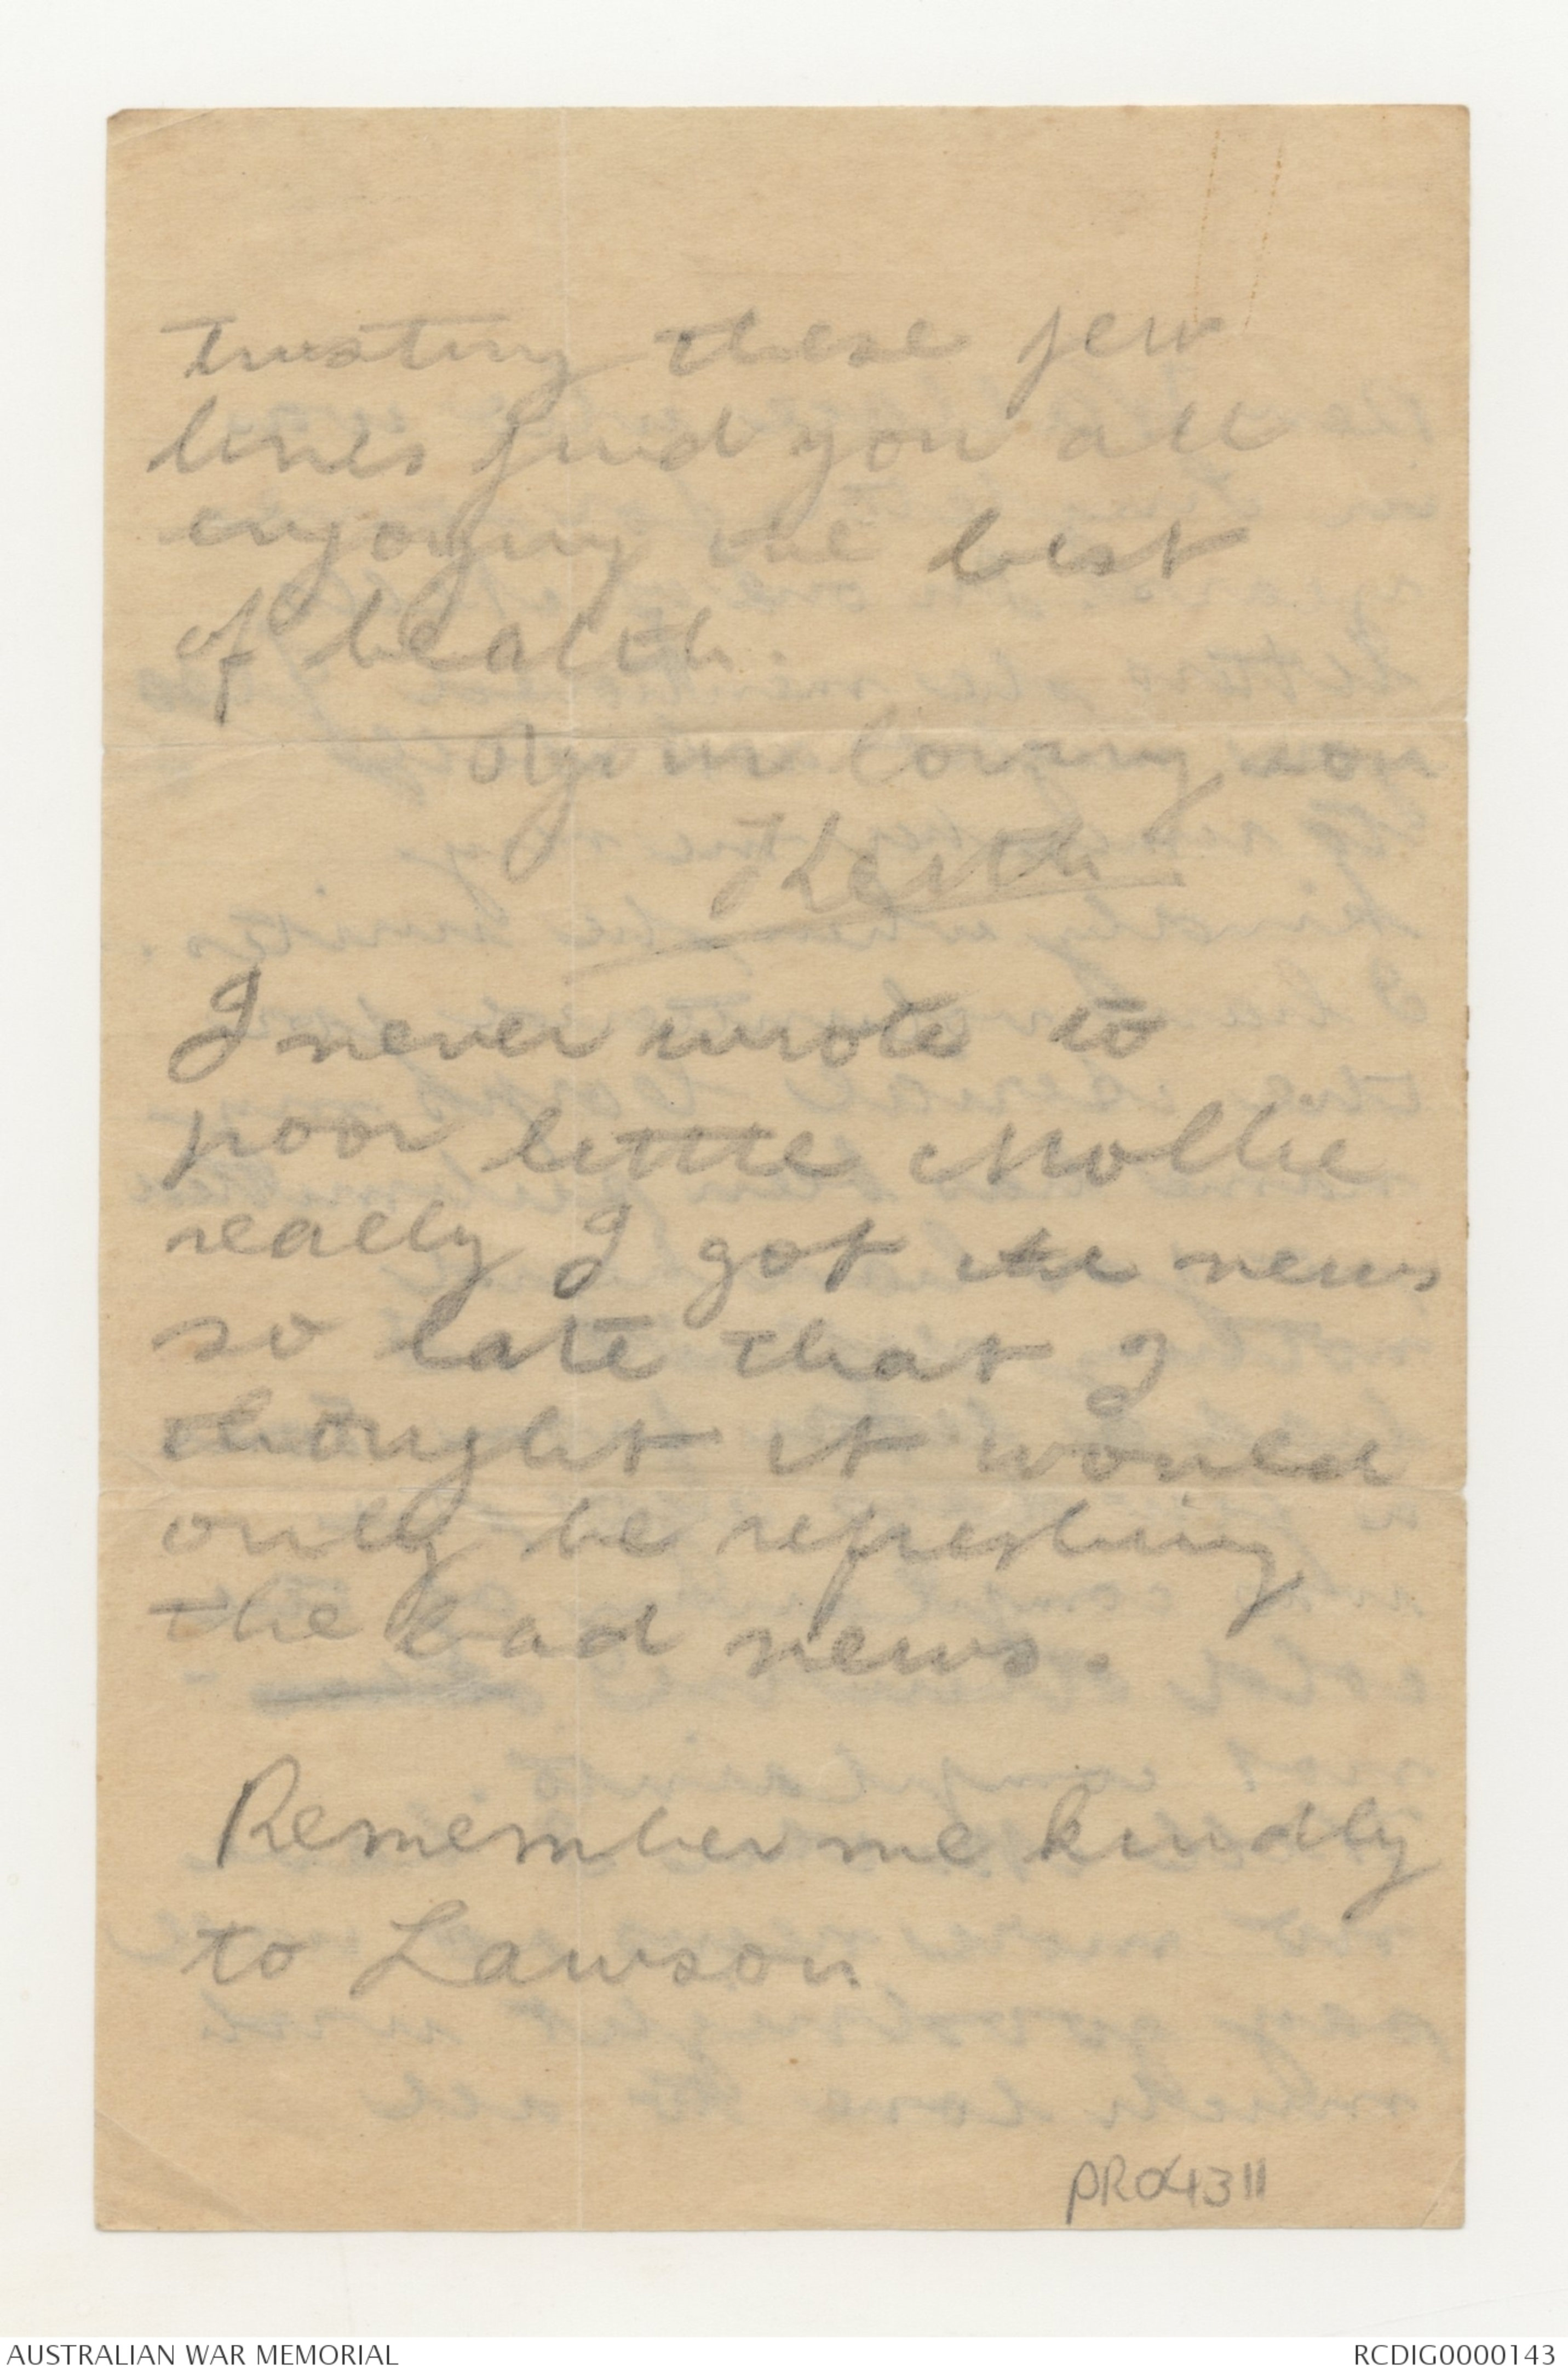 trusting these few
lines find you all
enjoying the best
of health.
Your loving son
Keith
I never wrote to
poor little Mollie
really I got the news
so late that I
thought it would
only be refreshing
the bad news.
Remember me kindly
to Lawson.
PR04311
AUSTRALIAN WAR MEMORIAL
RCDIG0000143